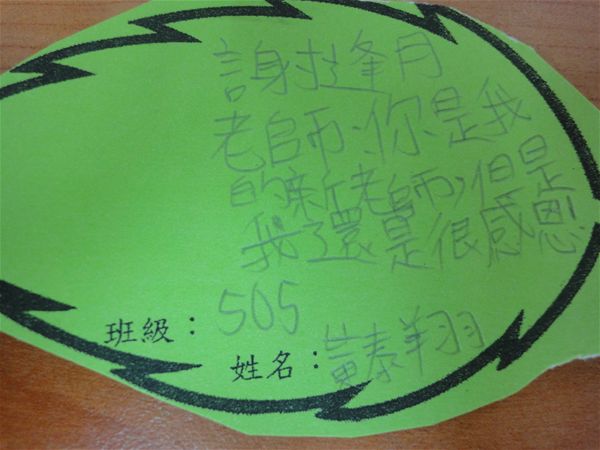 謝逢月
老師:你是我
的新老師,但是
我還是很感恩
班級:505
姓名:黃泰翔